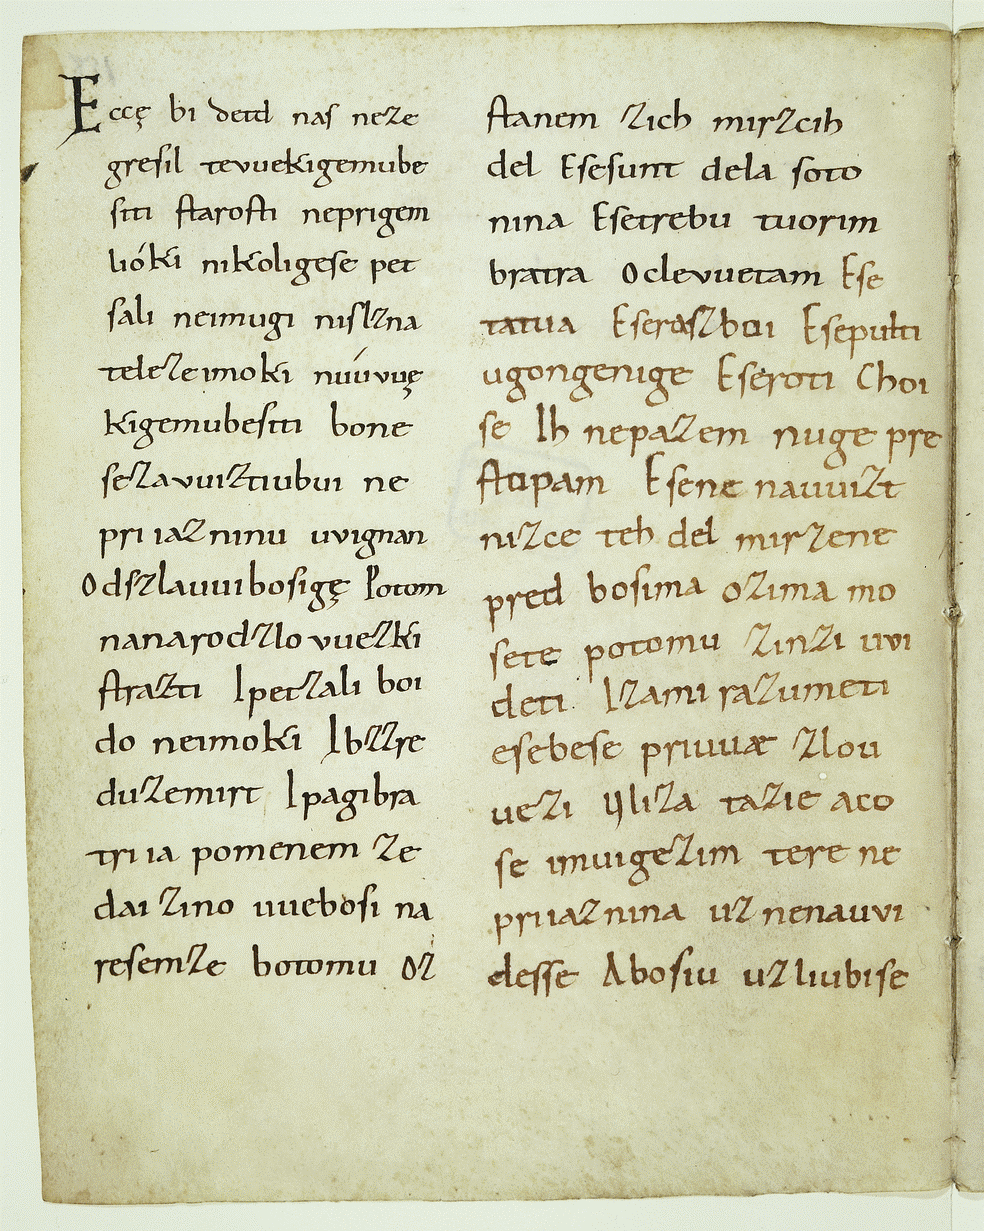 Eccę bi detd naſ neze
greſil tevuekigemube
ſiti ſtaroſti neprigem
lióki nikoligeſe pet
ſali neimugi niſlzna
teleZeimoki nuúvuę
kigemubeſiti bone
ſeZavuiZtiubui ne
priiaZninu uvignan
Odſzlauuiboſigę Potom
nanarodZlovueZki
ſtraZti Ipetzali boi
do neimoki IbzZre
duZemirt Ipagibra
triia pomenem Ze
dai Zino uuebóſi na
reſemZe botomu OZ
ſtanem Zich mirZcih
del Eſeſunt dela ſoto
nina Eſetrebu tuorim
bratra Oclevuetam Eſe
tatua Eſeraſzboi Eſepulti
ugongenige Eſeroti Choi
ſe Ih nepaZem nuge pre
ſtopam Eſene nauuiZt
niZce teh del mirZene
pred boſima oZima mo
ſete potomu ZinZi uvi
deti IZami raZumeti
eſebeſe priuuae Zlou
ueZi IliZa taZie aco
ſe imuigeZim tere ne
priiaZnina uZnenauvi
deſſe Aboſiu uZliubiſe